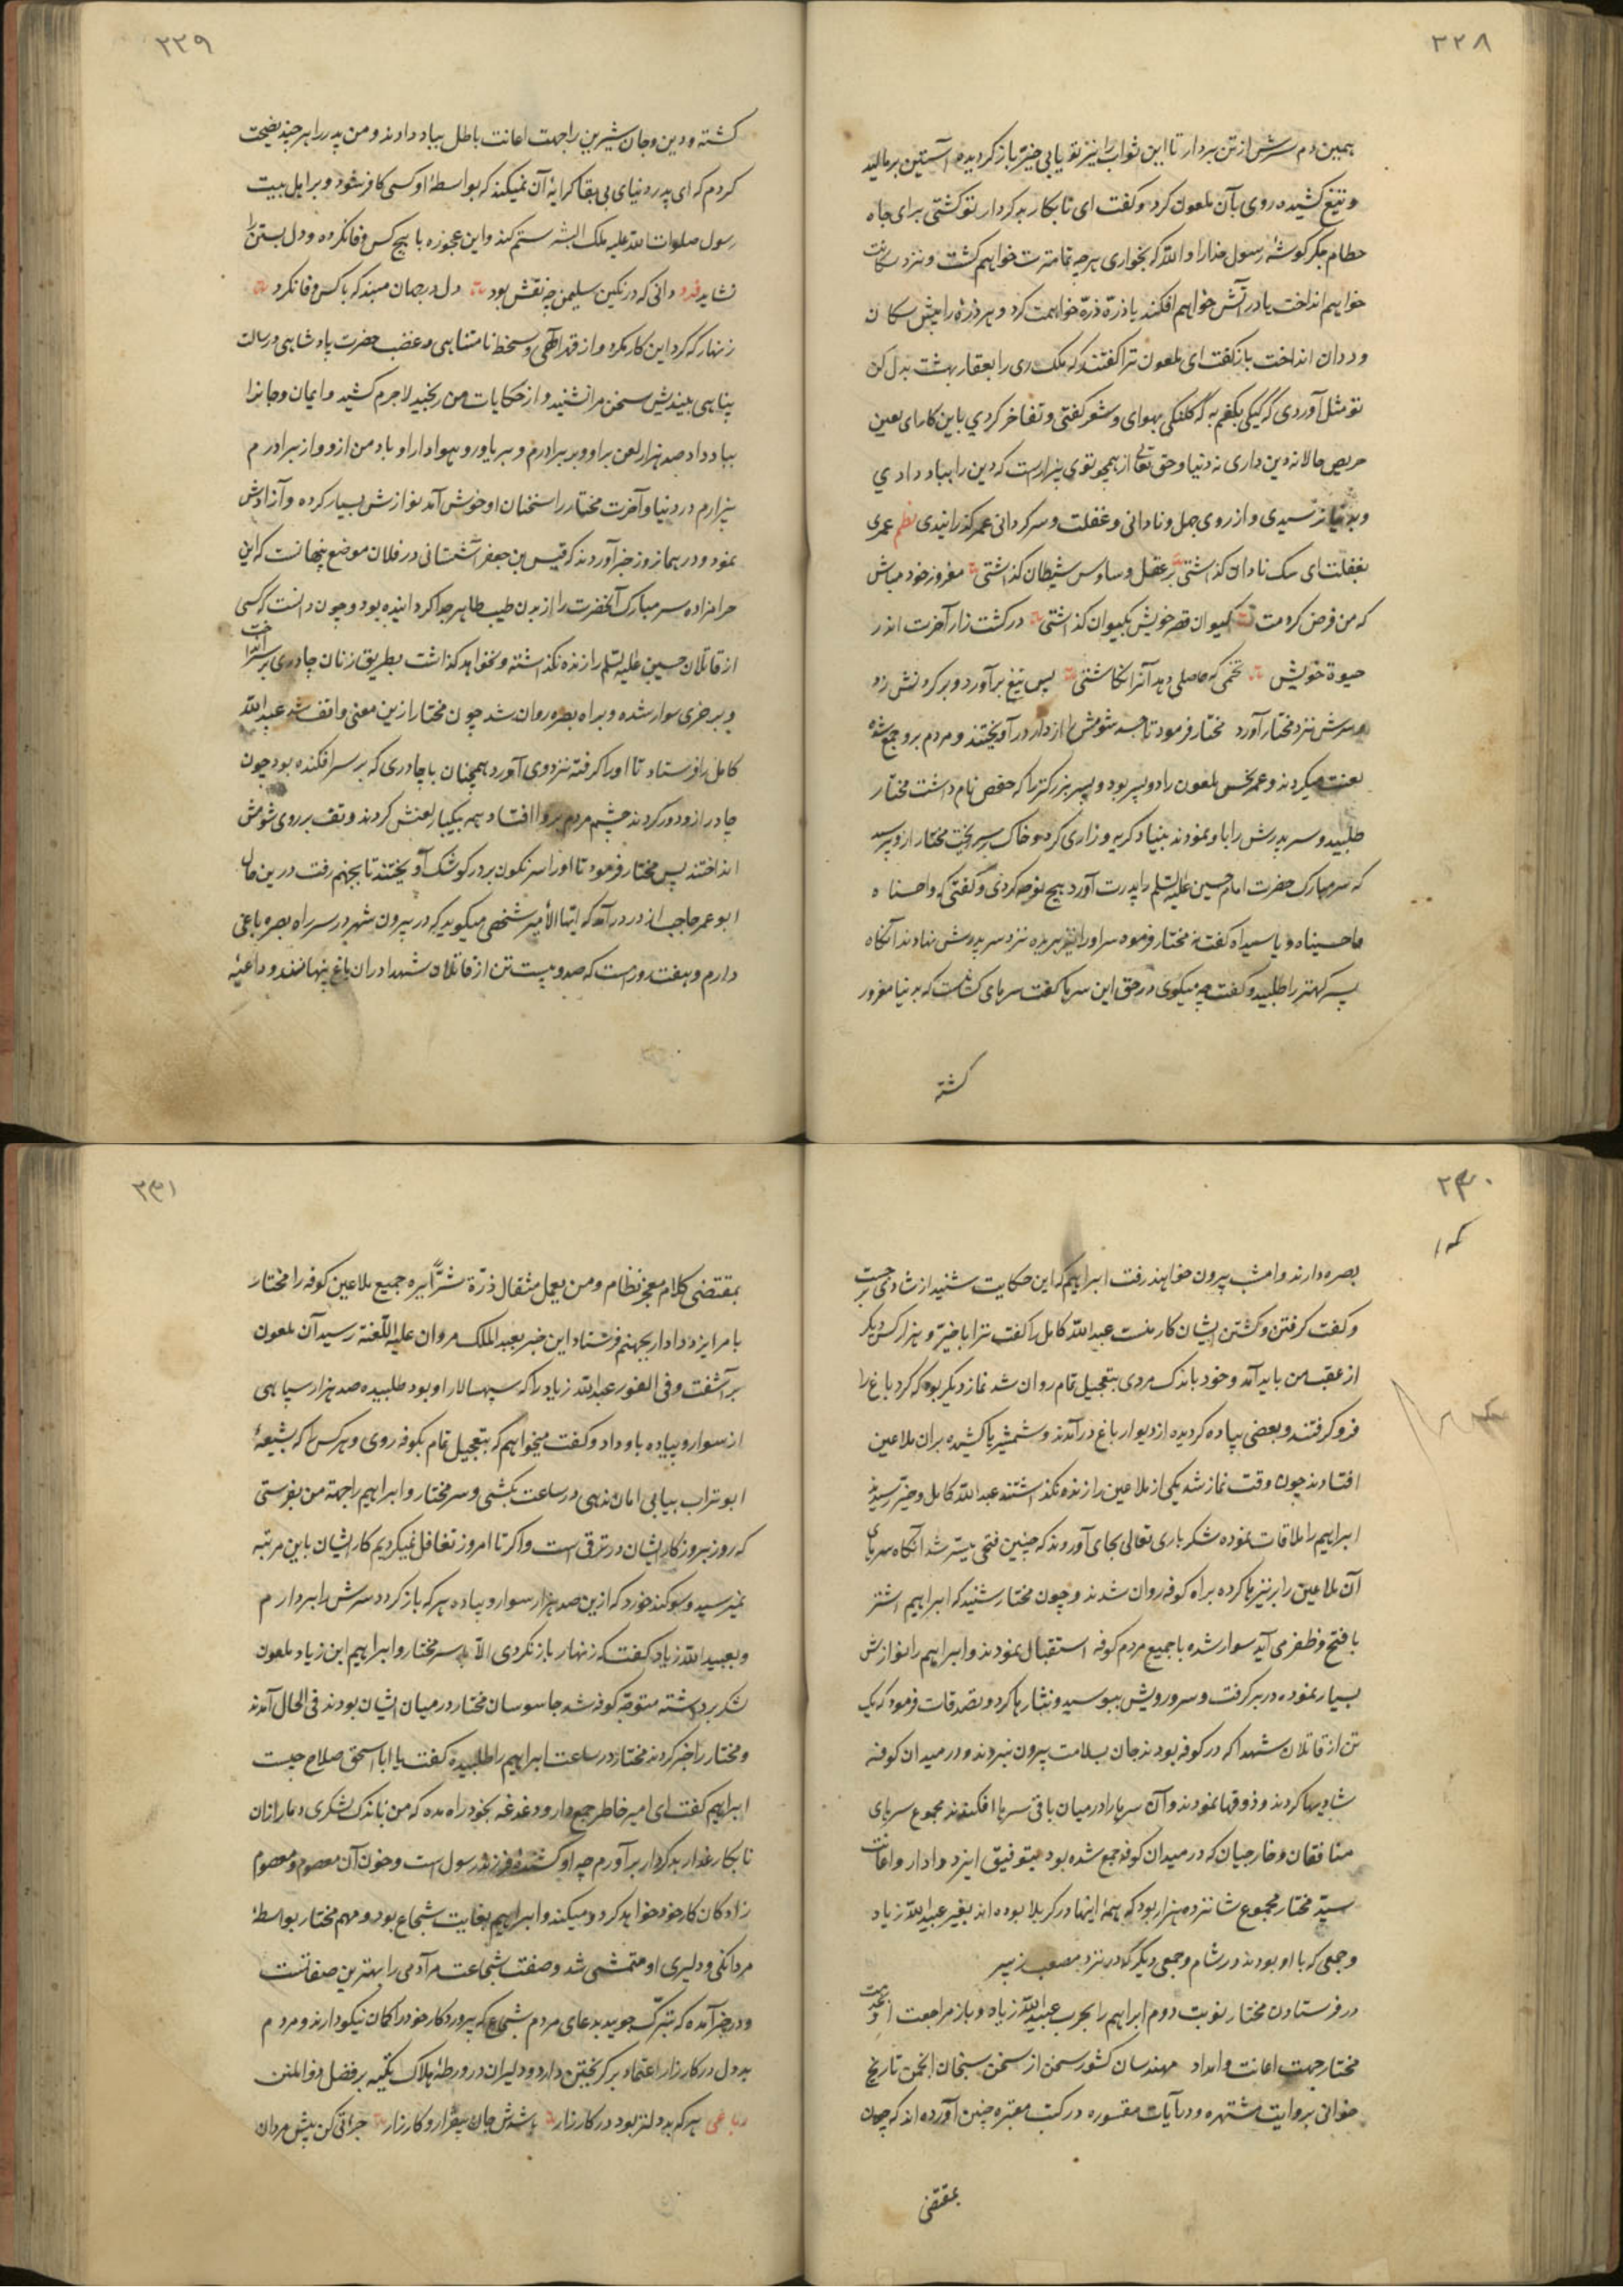 ۲۲۸
بهمین دم سرش از تن بردار تا این ثواب را نیز تو یابی خیّر باز گردیده آستین برمالید
و تیغ کشیده روی بآن ملعون کرد و گفت ای نابکار بدکردار تو کشتی برای جاه
حطام جگرگوشهٔ رسول خدا را واللّه که بخواری هر چه تمامترت خواهم کشت و نزد سگانت
خواهم انداخت یا در آتش خواهم افکند یا ذرّه ذرّه خواهمت کرد و هر ذرّه را پیش سگان
و ددان انداخت باز گفت ای ملعون ترا گفتند که ملک ری را بعقار بهشت بدل کن
تو مثل آوردی که گیگی بگفم به که کلنگی بهوای و شعر گفتی و تفاخر کردی باین کار ای لعین
حریص حالا نه دین داری نه دنیا و حق تعالی از همچو توی بیزارست که دین را بباد دادی
و بدنیا نرسیدی و از روی جهل و نادانی و غفلت و سرگردانی عمر گذرانیدی نظم عمری
بغفلت ای سگ نادان گذاشتی بر عقل وساوس شیطان گذاشتی مغرور خود مباش
که من فرض کردمت کیوان قصر خویش بکیوان گذاشتی در کشت زار آخرت اندر
حیوة خویش تخمی که حاصلی دهد آنرا نکاشتی پس تیغ برآورد و بر گردنش زد
و سرش نزد مختار آورد مختار فرمود تا جسد شومش را از دار در آویختند و مردم برو جمع شده
لعنت میکردند و عمر نحس ملعون را دو پسر بود و پسر بزرگتر را که حفص نام داشت مختار
طلبید و سر پدرش را باو نمودند بنیاد گریه و زاری کرد و خاک بر سر ریخت مختار ازو پرسید
که سر مبارک حضرت امام حسین علیه السلم را پدرت آورد هیچ نوحه کردی و گفتی که وا حسناه
وا حسیناه و یا سیداه گفت نه مختار فرمود سر او را نیز بریده نزد سر پدرش نهادند آنگاه
پسر کهتر را طلبید و گفت چه میگوی در حق این سرها گفت سرهای کسانست که بدنیا مغرور
کشته
۲۲۹
کشته و دین و جان شیرین را جهت اعانت باطل بباد دادند و من پدر را هر چند نصیحت
کردم که ای پدر دنیای بی بقا کرایهٔ آن نمیکند که بواسطهٔ او کسی کافر شود و بر اهل بیت
رسول صلوات اللّه علیه ملک البشر ستم کند و این عجوزه با هیچ کس وفا نکرده و دل بستن را
نشاید فرد دانی که در نگین سلیمن چه نقش بود دل در جهان مبند که با کس وفا نکرد
زنهار که گرد این کار مگرد و از قهر الهی و سخط نامتناهی و غضب حضرت پادشاهی و رسالت
پناهی بیندیش سخن مرا نشنید و از حکایات من رنجید لاجرم کشید و ایمان و جانرا
بباد داد صد هزار لعن بر او و بر برادرم و بر یاور و هوادار او باد من ازو و از برادرم
بیزارم در دنیا و آخرت مختار را سخنان او خوش آمد نوازش بسیار کرده و آزادش
نمود و در همانروز خبر آوردند که قیس بن حفر آشتانی در فلان موضع پنهانست که این
حرامزاده سر مبارک آنحضرت را از بدن طیب طاهر جدا گردانیده بود و چون دانست که کسی
از قاتلان حسین علیه السلم را زنده نگذاشته و نخواهد گذاشت بطریق زنان چادری بر سر انداخت
و بر خری سوار شده و براه بصره روان شد چون مختار ازین معنی واقف شد عبد اللّه
کامل را فرستاد تا او را گرفته نزد وی آورد همچنان با چادری که بر سر افکنده بود چون
چادر ازو دور کردند چشم مردم برو افتاد همه بیکبار لعنش کردند و تف بر روی شومش
انداختند پس مختار فرمود تا او را سرنگون بر در کوشک آویختند تا بجهنم رفت درین حال
ابو عمر حاجب از در درآمد که ایّها الأمیر شخصی میگوید که در بیرون شهر در سر راه بصره باغی
دارم و هفت روزست که صد و بیست تن از قاتلان شهدا دران باغ پنهانند و داعیهٔ
۲۳۰
بصره دارند و امشب بیرون خواهند رفت ابراهیم که این حکایت شنید از شادی برجست
و گفت گرفتن و کشتن ایشان کار منست عبد اللّه کامل را گفت ترا با خیّر و هزار کس دیگر
از عقب من باید آمد و خود باندک مردی بتعجیل تمام روان شد نماز دیگر بود که گرد باغ را
فرو گرفتند و بعضی پیاده گردیده از دیوار باغ درآمدند و شمشیرها کشیده بران ملاعین
افتادند چون وقت نماز شد یکی از ملاعین را زنده نگذاشتند عبد اللّه کامل و خیّر رسیدند
ابراهیم را ملاقات نموده شکر باری تعالی بجای آوردند که چنین فتحی میسّر شد آنگاه سرهای
آن ملاعین را بر نیزها کرده براه کوفه روان شدند و چون مختار شنید که ابراهیم اشتر
با فتح و ظفر می آید سوار شده با جمیع مردم کوفه استقبال نمودند و ابراهیم را نوازش
بسیار نموده در بر گرفت و سر و رویش ببوسید و نثارها کرد و تصدقات فرمود که یک
تن از قاتلان شهدا که در کوفه بودند جان بسلامت بیرون نبردند و در میدان کوفه
شادیها کردند و ذوقها نمودند و آن سرها را در میان باقی سرها افکندند مجموع سرهای
منافقان و خارجیان که در میدان کوفه جمع شده بود بتوفیق ایزد دادار و اعانت
سیّد مختار مجموع شانزده هزار بود که همهٔ اینها در کربلا بوده اند بغیر عبید اللّه زیاد
و جمعی که با او بودند در شام و جمعی دیگر که در نزد مصعب زبیر
در فرستادن مختار نوبت دوم ابراهیم را بحرب عبید اللّه زیاد و باز مراجعت او بخدمت
مختار جهت اعانت و امداد مهندسان کشور سخن از سخن سنجان انجمن تاریخ
خوانی بروایت مشتهره و درآیات مقسوره در کتب معتبره چنین آورده اند که چون
بمقتضی
۲۳۱
بمقتضی کلام معجز نظام و من یعمل مثقال ذرّة شرّاً یره جمیع ملاعین کوفه را مختار
بامر ایزد دادار بجهنم فرستاد این خبر بعبد الملک مروان علیه اللّعنة رسید آن ملعون
برآشفت و فی الفور عبد اللّه زیاد را که سپهسالار او بود طلبیده صد هزار سپاهی
از سوار و پیاده باو داد و گفت میخواهم که بتعجیل تمام بکوفه روی و هر کس را که بشیعهٔ
ابو تراب بیابی امان ندهی در ساعت بکشی و سر مختار و ابراهیم را جهة من بفرستی
که روز بروز کار ایشان در ترقی است و اگر تا امروز تغافل نمیکردیم کار ایشان باین مرتبه
نمیرسید و سوگند خورد که ازین صد هزار سوار و پیاده هر که باز گردد سرش را بردارم
و بعبید اللّه زیاد گفت که زنهار باز نگردی الّا با سر مختار و ابراهیم ابن زیاد ملعون
لشکر برداشته متوجّه کوفه شد جاسوسان مختار در میان ایشان بودند فی الحال آمدند
و مختار را خبر کردند مختار در ساعت ابراهیم را طلبیده گفت یا ابا اسحق صلاح چیست
ابراهیم گفت ای امیر خاطر جمع دار و دغدغه بخود راه مده که من باندک لشکری دمار ازان
نابکار غدار بدکردار برآورم چه او کشندهٔ فرزند رسول است و خون آن معصوم و معصوم
زادگان کار خود خواهد کرد و میکند و ابراهیم بغایت شجاع بود و مهم مختار بواسطهٔ
مردانگی و دلیری او متمشی شد و صفت شجاعت مر آدمی را بهترین صفاتست
و در خبر آمده که تبرّک جویید بدعای مردم شجاع که پروردکار خود را گمان نیکو دارند و مردم
بد دل در کارزار اعتماد بر گریختن دارد و دلیران در ورطهٔ هلاک تکیه بر فضل ذو المنن
رباعی هر که بددلتر بود در کارزار باشدش جان بیقرار و کارزار جرأتی کن پیش مردان